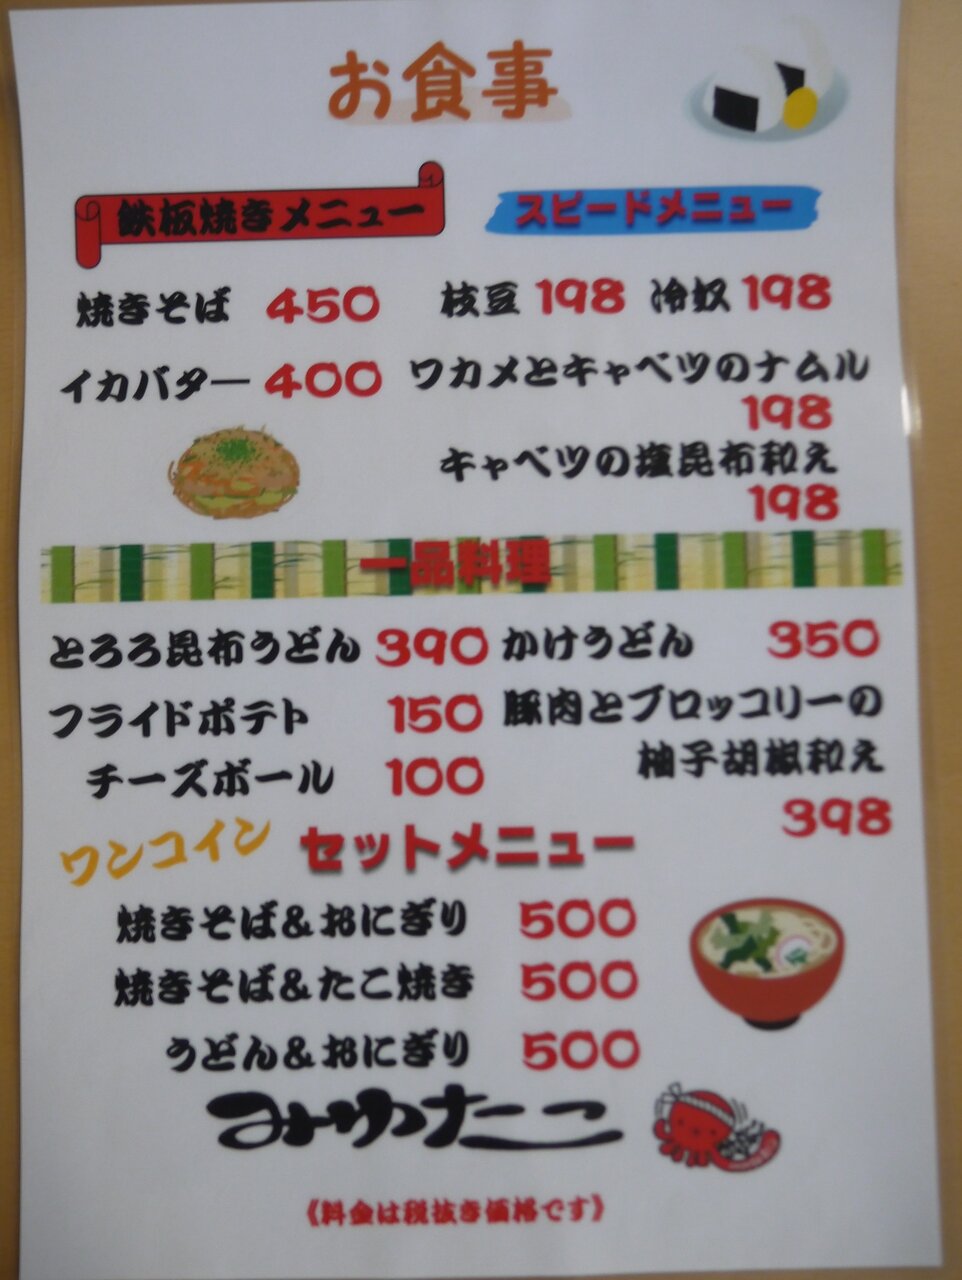 お食事
鉄板焼きメニュー
焼きそば 450
イカバター 400
スピードメニュー
枝豆 198 冷奴 198
ワカメとキャベツのナムル
198
キャベツの塩昆布和え
198
一品料理
とろろ昆布うどん 390
フライドポテト 150
チーズボール 100
かけうどん 350
豚肉とブロッコリーの
柚子胡椒和え
398
ワンコイン セットメニュー
焼きそば&おにぎり 500
焼きそば&たこ焼き 500
うどん&おにぎり 500
みゆたこ
《料金は税抜き価格です》